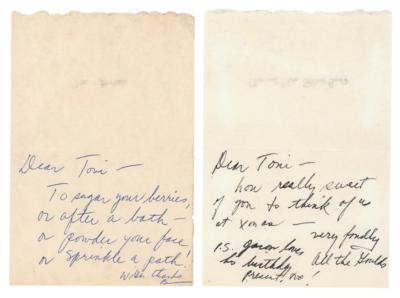 Dear Toni —
To sugar your berries,
or after a bath —
or powder your face
or sprinkle a path!
With thanks
Dear Toni —
how really sweet
of you to think of us
at xmas —
very fondly
All the Goulds
P.S. Jason loves
his birthday
present, too!